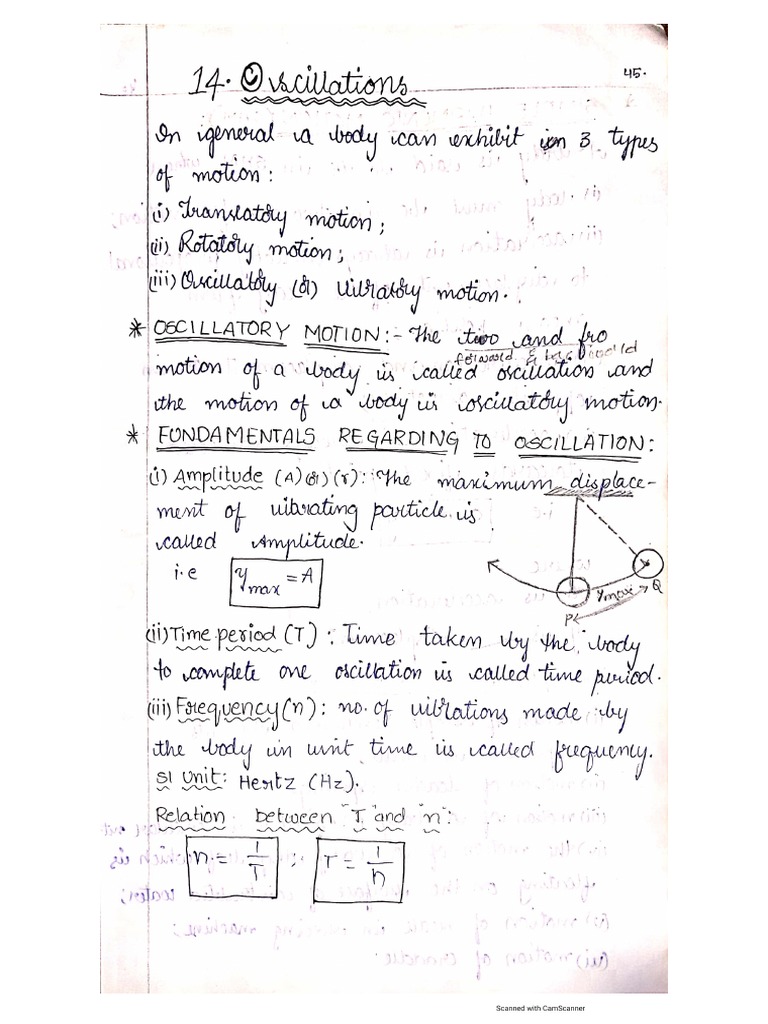 45.
14. Oscillations
In general a body can exhibit in 3 types
of motion:
(i) Translatory motion;
(ii) Rotatory motion;
(iii) Oscillatory (or) Vibratory motion.
* OSCILLATORY MOTION:- The two and fro
forward & backward
motion of a body is called oscillation and
the motion of a body is oscillatory motion.
* FUNDAMENTALS REGARDING TO OSCILLATION:
(i) Amplitude (A) (or) (r): The maximum displace-
ment of vibrating particle is
called Amplitude.
i.e y max = A
P Y max Q
(ii) Time period (T): Time taken by the body
to complete one oscillation is called time period.
(iii) Frequency (n): no. of vibrations made by
the body in unit time is called frequency.
SI Unit: Hertz (Hz).
Relation between "T" and "n":
n = 1/T ; T = 1/n
Scanned with CamScanner